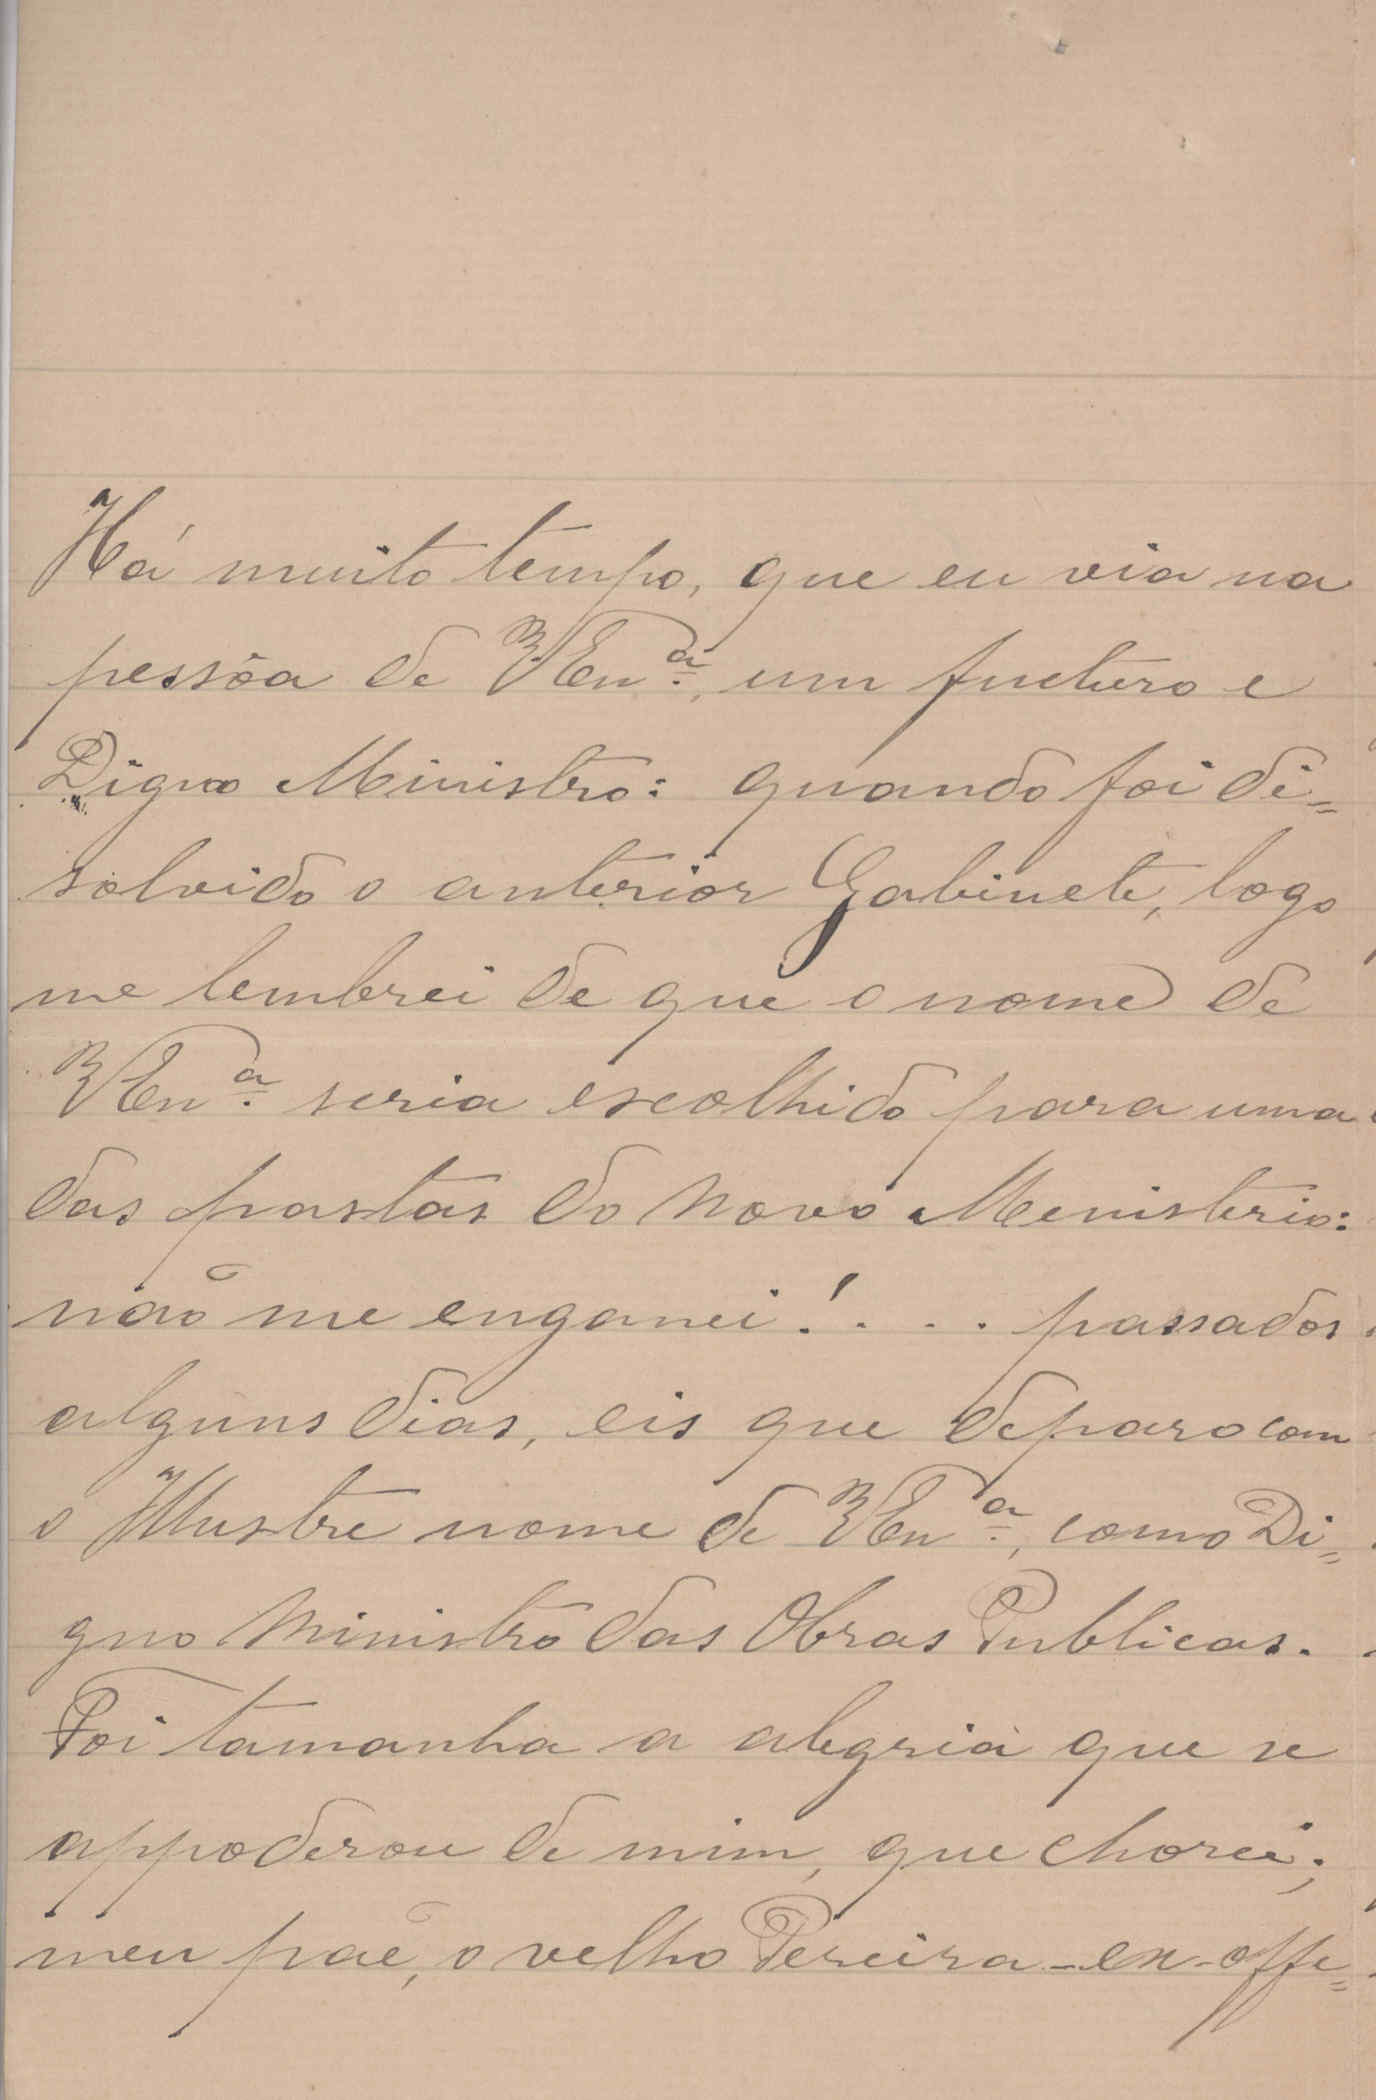 Há muito tempo, que eu via na
pessôa de V Exª, um fucturo e
Digno Ministro: quando foi di=
solvido o anterior Gabinete, logo
me lembrei de que o nome de
V Exª. seria escolhido para uma
das pastas do novo Menisterio:
não me enganei!... passados
alguns dias, eis que deparo com
o Illustre nome de V Exª, como Di=
gno Ministro das Obras Publicas.
Foi tamanha a alegria que se
appoderou de mim, que chorei;
meu pae, o velho Pereira - ex-offi=